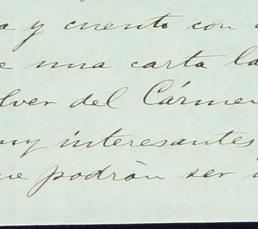 y cuento con
una carta la
lver del Cármen
muy interesantes
ue podrán ser